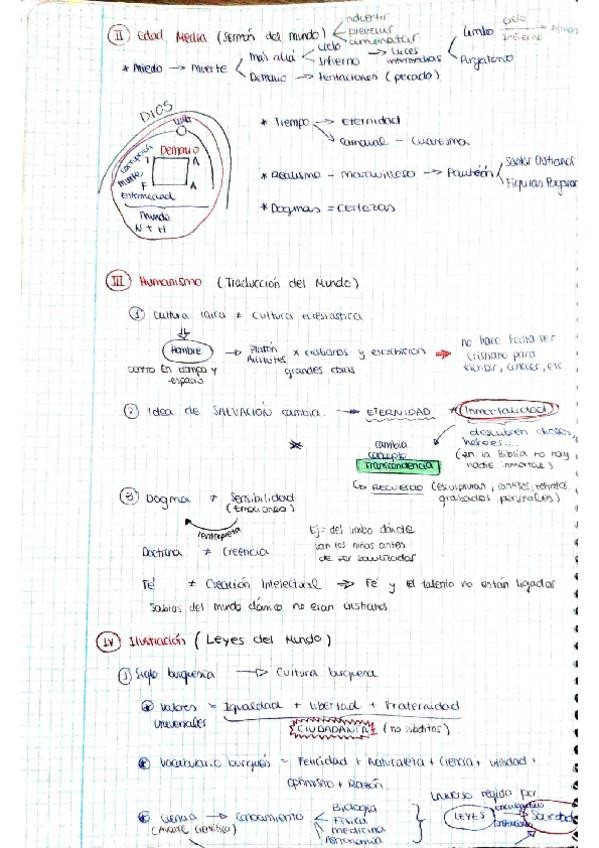 II Edad Media (Sermón del mundo) advertir
prevenir
amenazar
* Miedo → Muerte Más allá Cielo
Infierno → Luces
intermedias Limbo Cielo
Infierno → Almas
Purgatorio
Demonio → tentaciones (pecado)
DIOS
Demonio
T A
F A
corrupción
muerte
enfermedad
mundo
N + H
* Tiempo → Eternidad
Carnaval - Cuaresma
* Realismo - maravilloso → Panteón Santos Cristianos
Figuras Popular
* Dogmas = certezas
III Humanismo (Traducción del Mundo)
1 Cultura laica ≠ Cultura eclesiástica
Hombre → Platón
x cristianos y escribieron
grandes obras
no hace falta ser
cristiano para
escribir, conocer, etc
centro en tiempo y
espacio
2 Idea de SALVACIÓN cambia. → ETERNIDAD ≠ Inmortalidad
descubren dioses,
héroes....
(en la Biblia no hay
nadie inmortal)
cambia
concepto
Transcendencia
↳ RECUERDO (esculpturas, retratos,
grabados personales)
3 Dogma ≠ Sensibilidad
(Emociones)
reinterpreta
Ej= del limbo dónde
van los niños antes
de ser bautizados
Doctrina ≠ Creencia
Fé ≠ Creación Intelectual ⇒ Fé y el talento no están ligados
Sabios del mundo clásico no eran cristianos
IV Ilustración (Leyes del Mundo)
1 Siglo burguesía → Cultura burguesa
* Valores = Igualdad + libertad + Fraternidad
Universales
CIUDADANÍA (no súbditos)
* Vocabulario burgués = Felicidad + Naturaleza + Ciencia + utilidad +
optimismo + Razón.
* Ciencia → Conocimiento Biología
Física
medicina
Astronomía
(Avance científico)
Universo regido por
LEYES
Sociedad